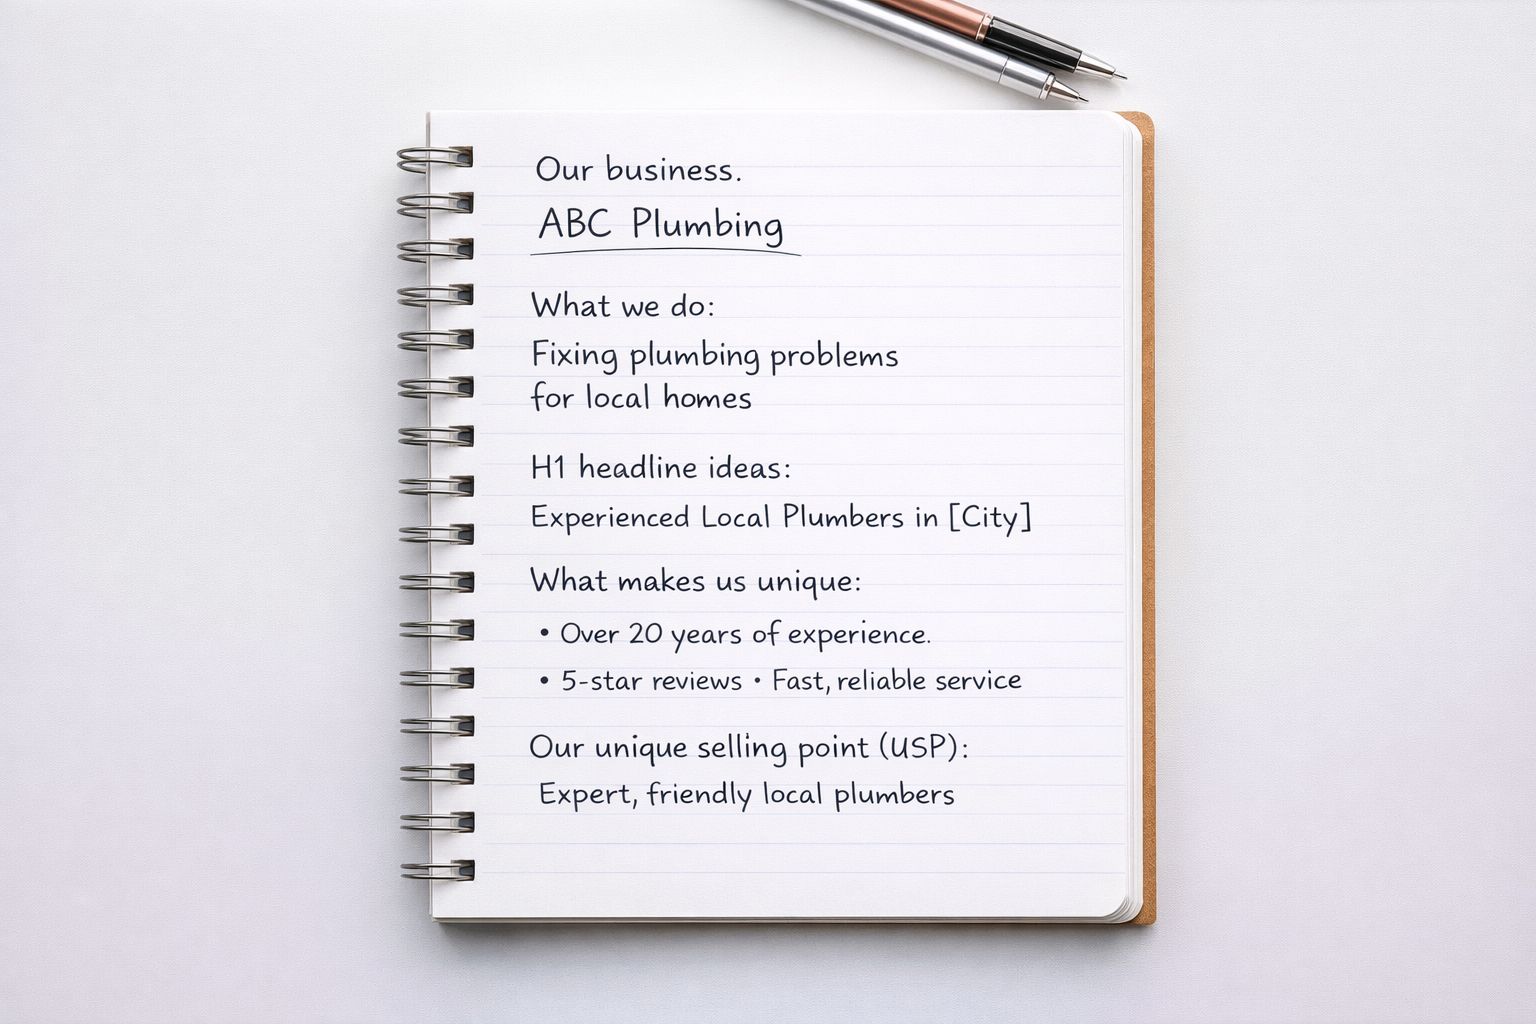 Our business.
ABC Plumbing
What we do:
Fixing plumbing problems
for local homes
H1 headline ideas:
Experienced Local Plumbers in [City]
What makes us unique:
• Over 20 years of experience.
• 5-star reviews • Fast, reliable service
Our unique selling point (USP):
Expert, friendly local plumbers